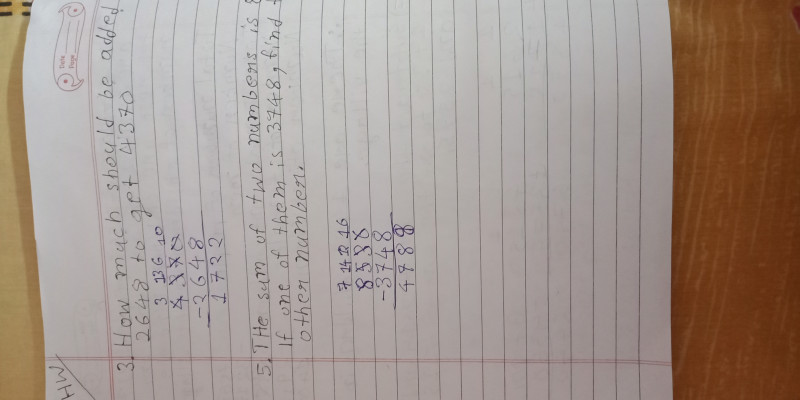 HW
Date
Page
3. How much should be added
2648 to get 4370
3 13 6 10
4 3 7 0
-2648
1722
5. THe sum of two numbers is 8
If one of them is 3748, find
other number.
7 14 12 16
-3748
4788